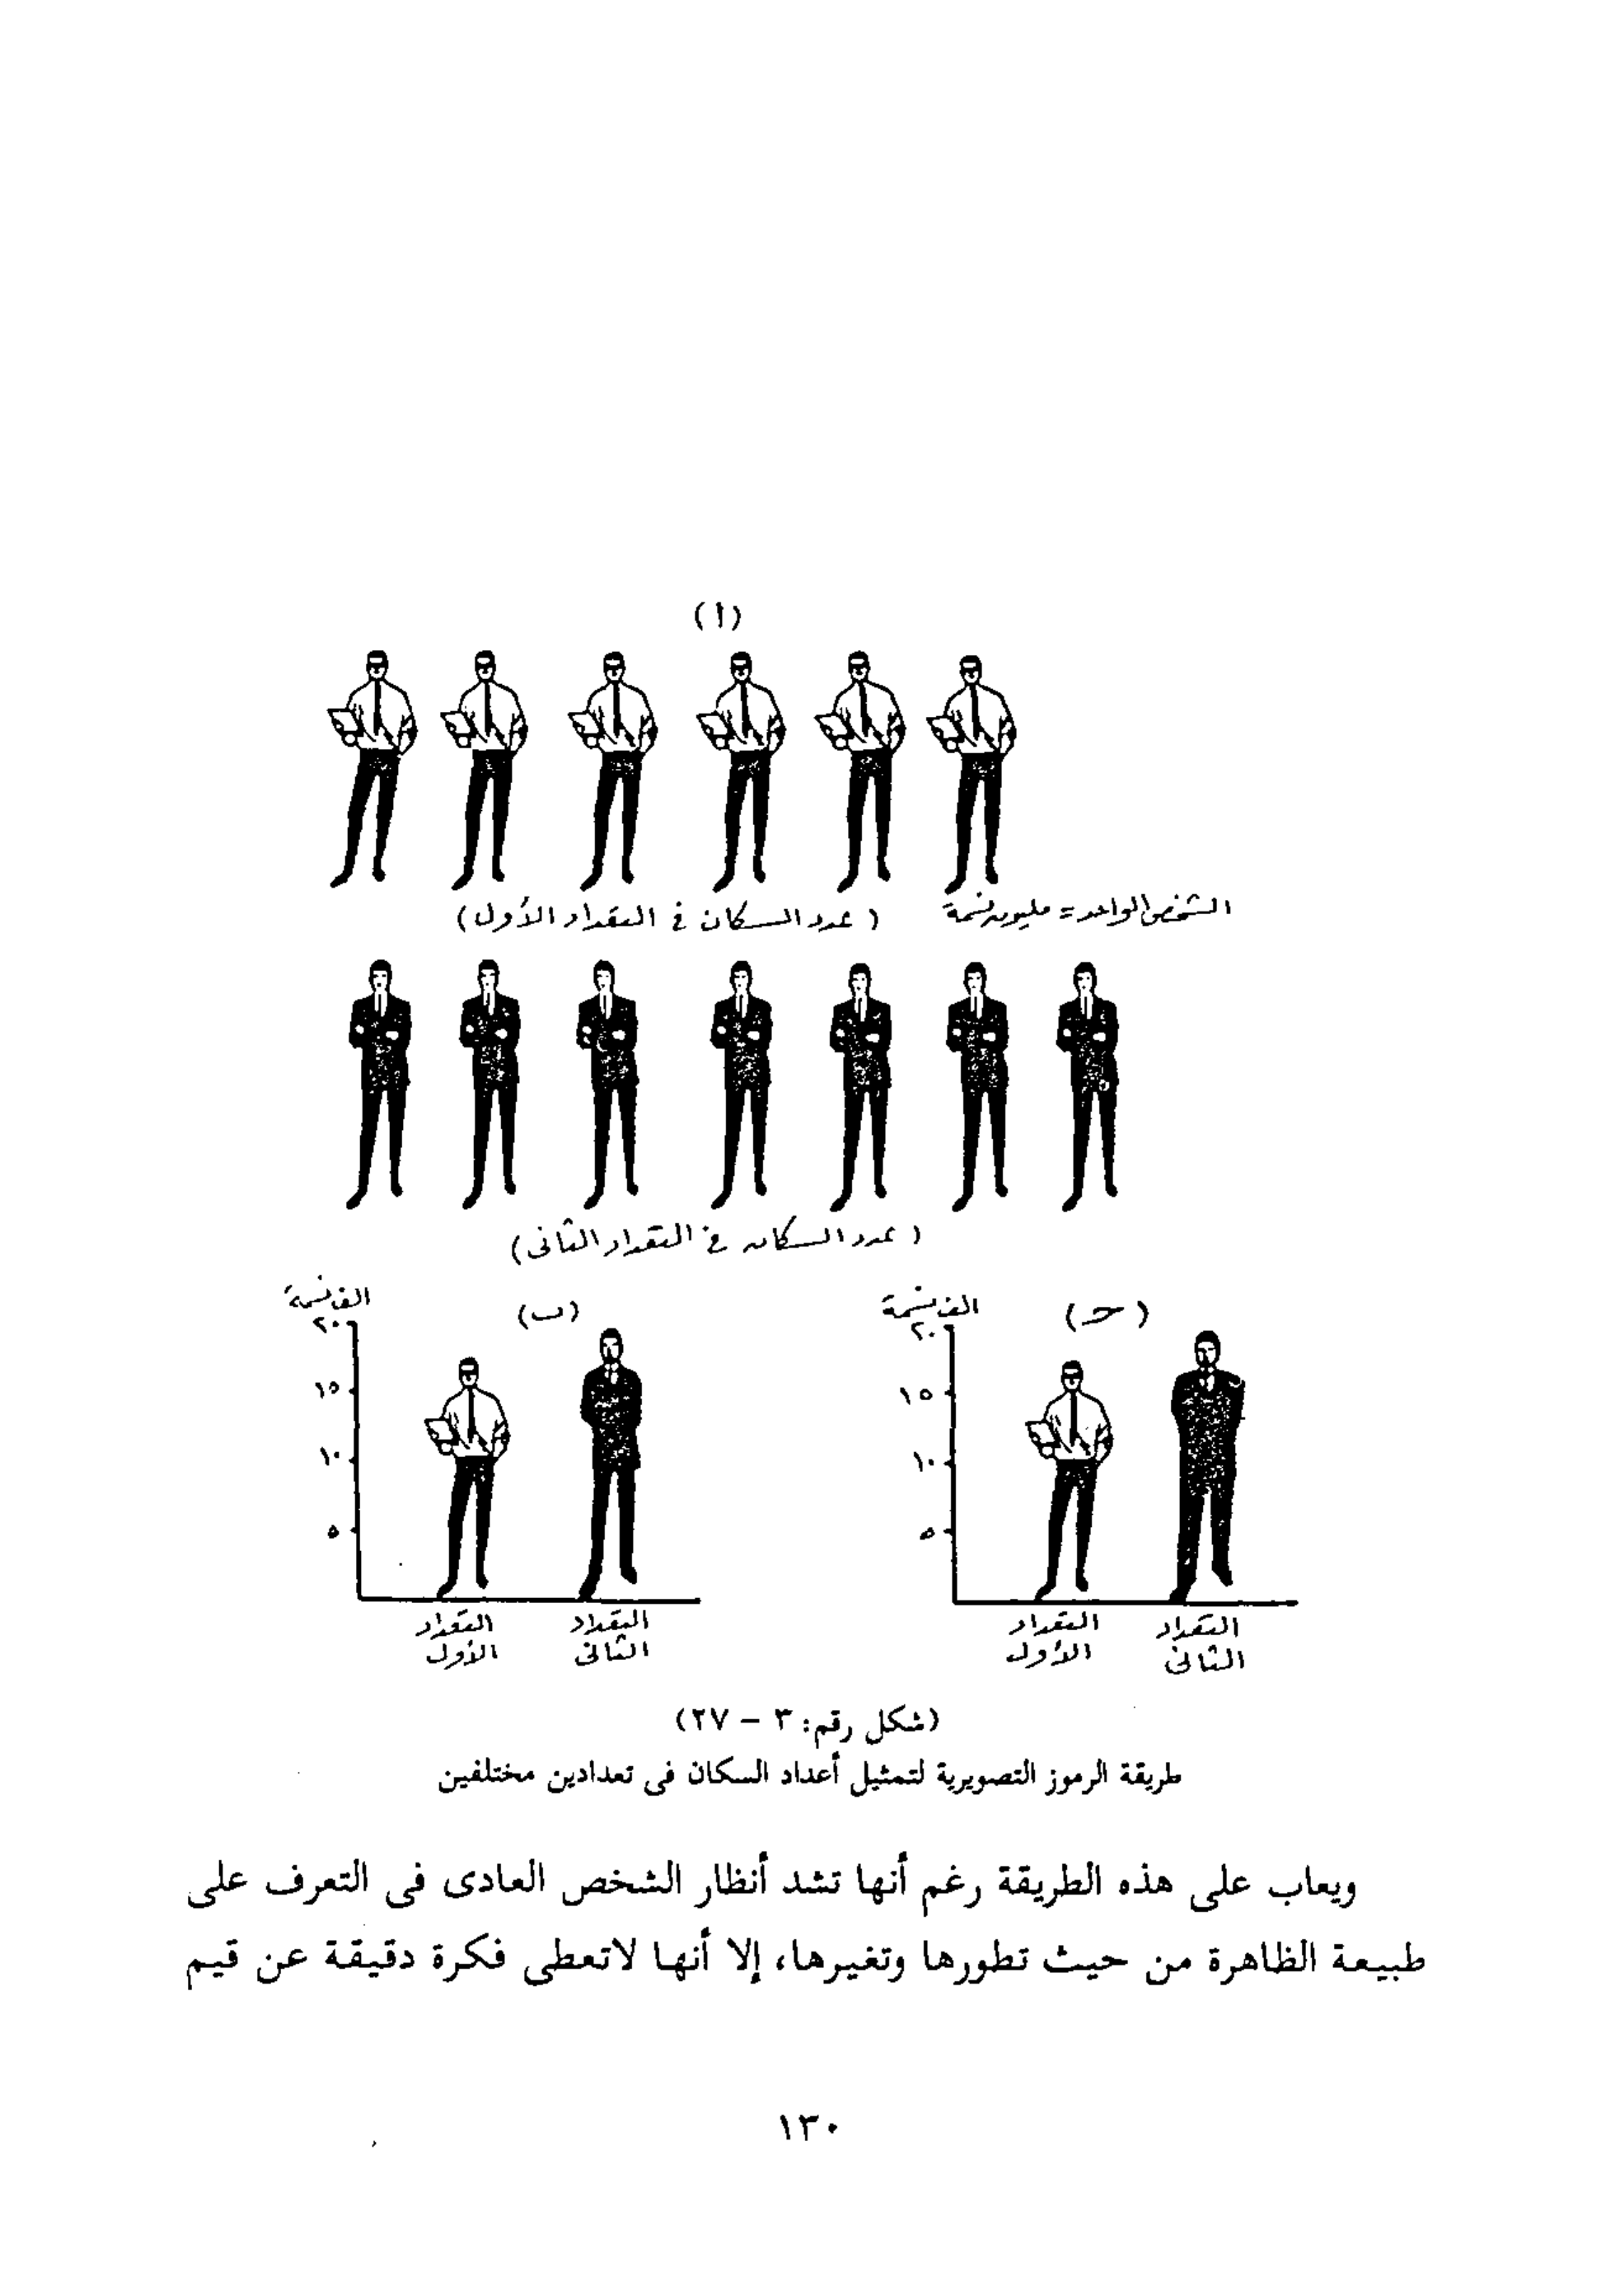 (أ)
الشخص الواحد = مليون نسمة (عدد السكان فى التعداد الأول)
(عدد السكان فى التعداد الثانى)
(حـ) (ب)
الف نسمة
٢٠
١٥
١٠
٥
التعداد الأول
التعداد الثانى
الف نسمة
٢٠
١٥
١٠
٥
التعداد الأول
التعداد الثانى
(شكل رقم: ٣ – ٢٧)
طريقة الرموز التصويرية لتمثيل أعداد السكان فى تعدادين مختلفين
ويعاب على هذه الطريقة رغم أنها تشد أنظار الشخص العادى فى التعرف على
طبيعة الظاهرة من حيث تطورها وتغيرها، إلا أنها لاتعطى فكرة دقيقة عن قيم
١٣٠